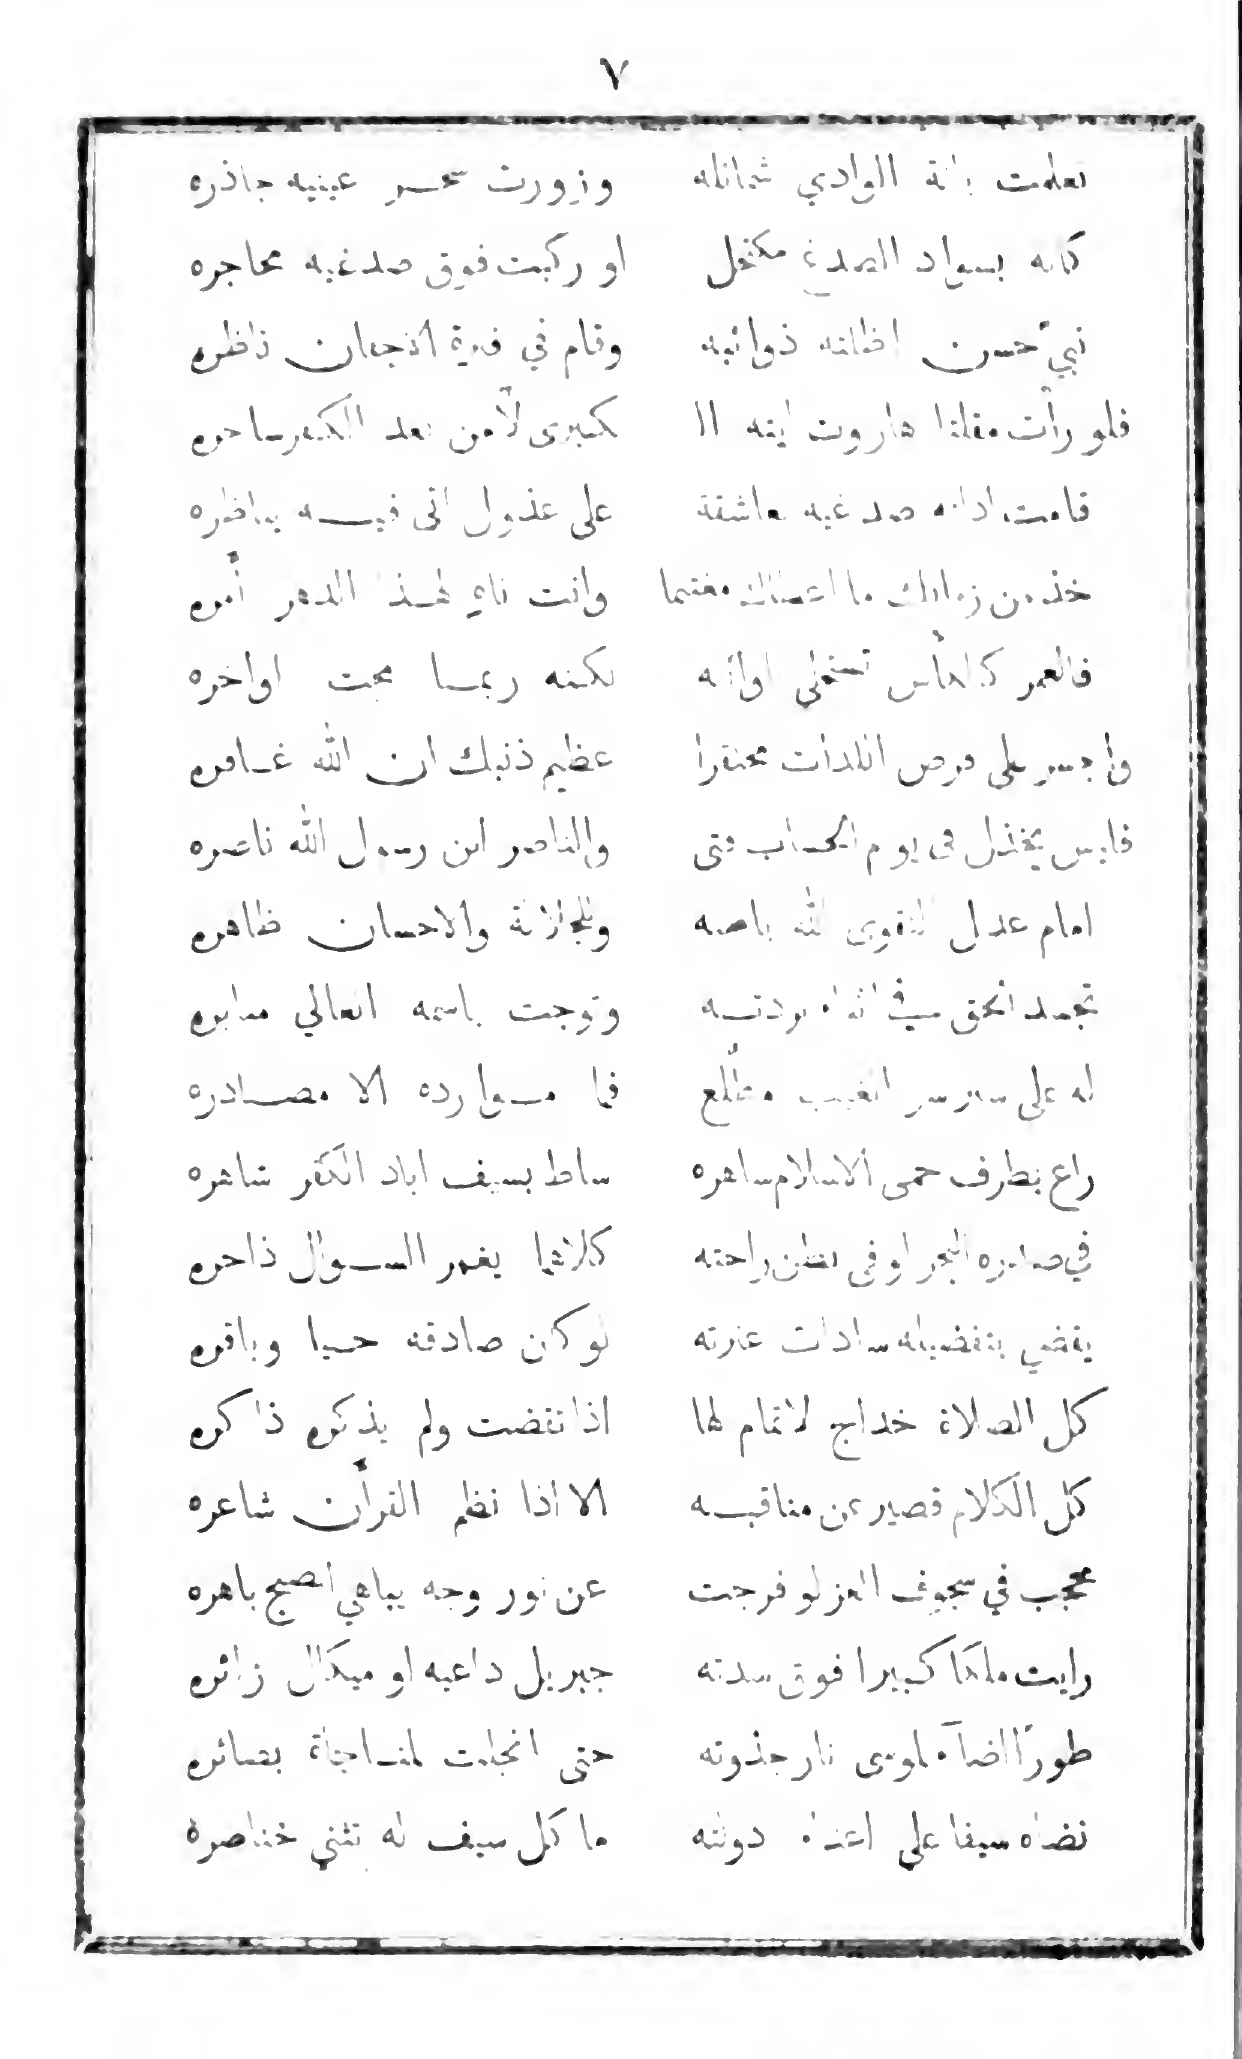 ٧
تعلمت بانة الوادي شمائله وزورت سحر عينيه جاذره
كانه بسواد الصدغ مكتحل او ركبت فوق صدغيه محاجره
نبيّ حسن اظلته ذوائبه وقام في فترة الاجفان ناظره
فلو رأت مقلتا هاروت ايته ال كبرى لأمن بعد الكفر ساحره
قامت ادلة صدغيه لعاشقه على عذول اتى فيه يناظره
خذ من زمانك ما اعطاك مغتنما وانت ناهٍ لهذا الدهر أمره
فالعمر كالكأس تستحلى اوائله لكنه ربما مجت اواخره
واجسر على فرص اللذات محتقرا عظيم ذنبك ان الله غافره
فليس يخذل في يوم الحساب فتى والناصر ابن رسول الله ناصره
امام عدل لتقوى الله باطنه وللجلالة والاحسان ظاهره
تجسد الحق في اثناء بردته وتوجت باسمه العالي منابره
له على ستر سر الغيب مطّلع فما موارده الا مصادره
راع بطرف حمى الاسلام ساهره ساط بسيف اباد الكفر شاهره
في صدره البحر او في بطن راحته كلاهما يغمر السوال ذاخره
يقضي بتفضيله سادات عترته لو كان صادقه حيا وباقره
كل الصلاة خداج لا تمام لها اذا تقضت ولم يذكره ذاكره
كل الكلام قصير عن مناقبه الا اذا نظم القرأن شاعره
محجب في سجوف العز لو فرجت عن نور وجه يباهي الصبح باهره
رايت ملكا كبيرا فوق سدته جبريل داعيه او ميكال زائره
طورًا اضآء لموسى نار جذوته حتى انجلت لمناجاة بصائره
نضاه سيفا على اعداء دولته ما كل سيف له تثني خناصره